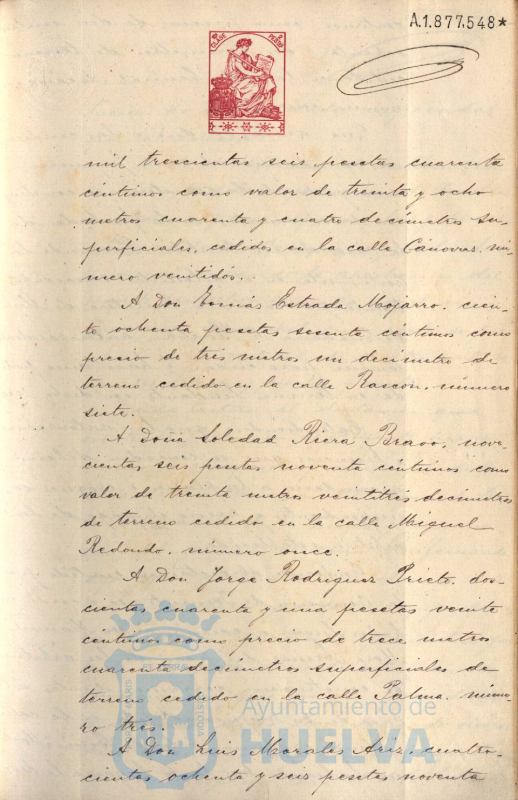 A.1.877,548*
CLASE
mil trescientas seis pesetas cuarenta
céntimos como valor de treinta y ocho
metros cuarenta y cuatro decímetros su-
perficiales, cedidos en la calle Cánovas, nú-
mero veintidós.
A Don Tomás Estrada Mojarro, cien-
to ochenta pesetas sesenta céntimos como
precio de tres metros un decímetro de
terreno cedido en la calle Rascón, número
siete.
A Doña Soledad Riera Bravo, nove-
cientas seis pesetas noventa céntimos como
valor de treinta metros veintitrés decímetros
de terreno cedido en la calle Miguel
Redondo, número once.
A Don Jorge Rodriguez Prieto, dos-
cientas cuarenta y una pesetas veinte
céntimos como precio de trece metros
cuarenta decímetros superficiales de
terreno cedido en la calle Palma, núme-
ro tres.
A Don Luis Morales Ariz, cuatro-
cientas ochenta y seis pesetas noventa
Ayuntamiento de
HUELVA